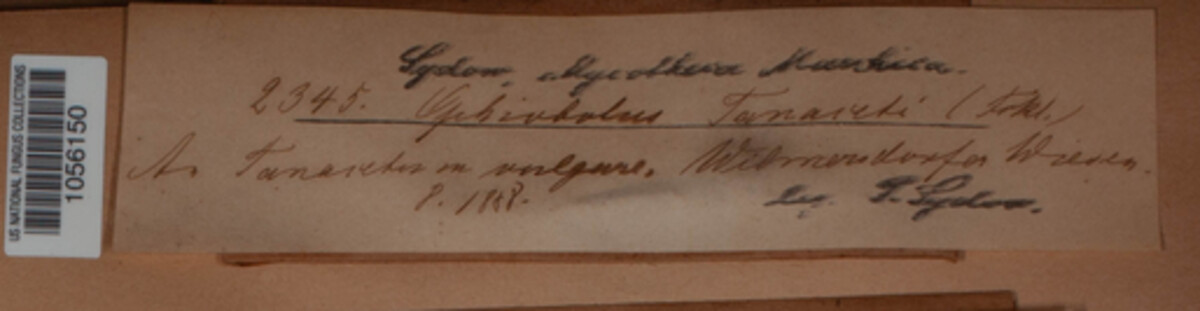 US NATIONAL FUNGUS COLLECTIONS
1056150
Sydow, Mycotheca Marchica.
2345. Ophiobolus Tanaceti (Fckl.)
An Tanacetum vulgare. Wilmersdorfer Wiesen.
8. 1888.
leg. P. Sydow.